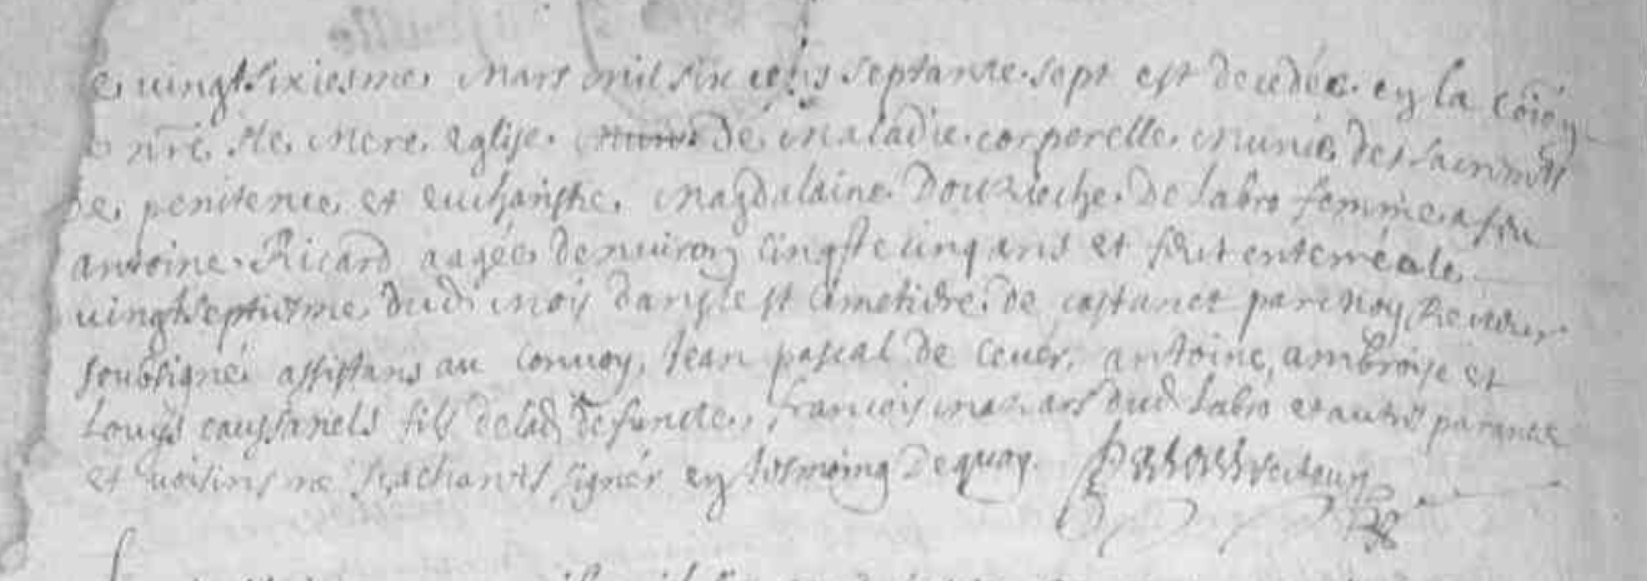 e vingt sixiesme mars mil six cens septante sept est decedée en la coion
nre Ste mere eglise de maladie corporelle munie des sacremts
de penitence et eucharistie magdalaine de labro femme a feu
antoine Ricard aagée denuiron et feut enterrée le
vingt septiesme dud mois dans le st cimetiere de castanet par moy
soubsigné assistans au convoy, Jean pascal de antoine, ambroise et
Louys caussanels fils de lad defuncte, francois dud labro et autres parans
et voisins ne sachants signer en tesmoing dequoy. recteur